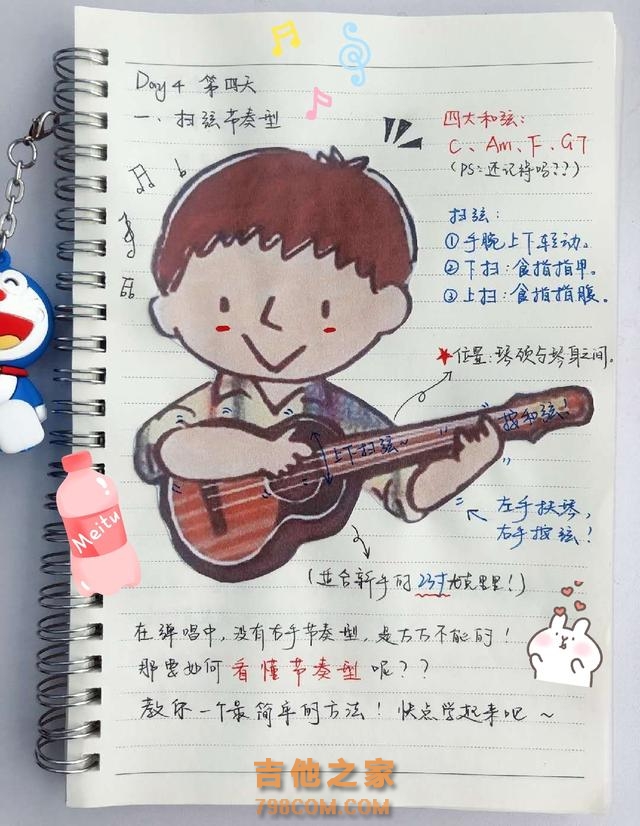 Day 4 第四天
一、扫弦节奏型
四大和弦:
C、Am、F、G7
(PS:还记得吗??)
扫弦:
①手腕上下转动。
②下扫:食指指甲。
③上扫:食指指腹。
★位置:琴颈与琴身之间。
按和弦!
上下扫弦~
左手扶琴,
右手按弦!
(适合新手的23寸尤克里里!)
Meitu
在弹唱中,没有右手节奏型,是万万不能的!
那要如何看懂节奏型呢??
教你一个最简单的方法!快点学起来吧~
吉他之家
798COM.COM